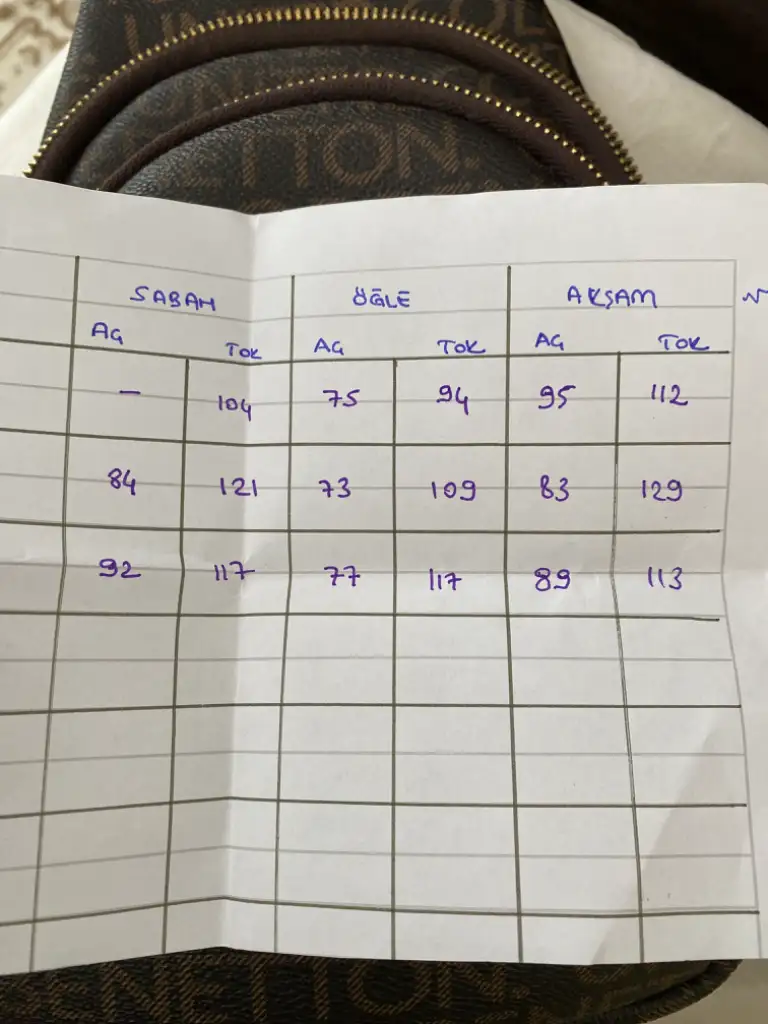 ETTON.
SABAH ÖĞLE AKŞAM
AG TOK AG TOK AG TOK
— 104 75 94 95 112
84 121 73 109 83 129
92 117 77 117 89 113
ENETTON